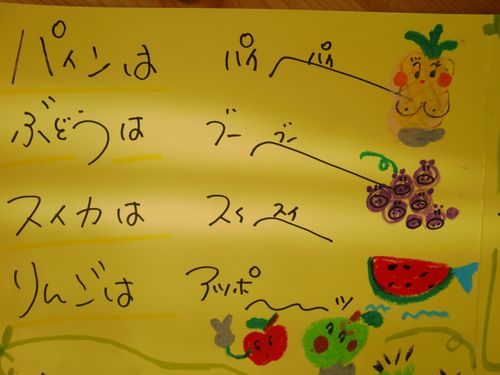 パインは パイ パイ
ぶどうは ブー ブー
スイカは スイ スイ
りんごは アッポ〜〜ッ